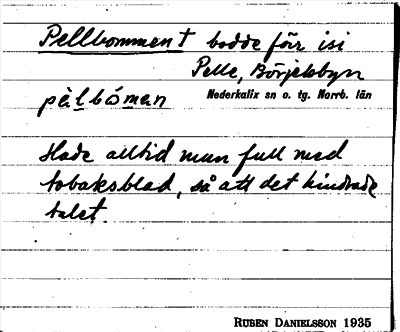 Pellbommen † bodde förr isi
Pelle, Börjelsbyn
Nederkalix sn o. tg. Norrb. län
pèlbómen
Hade alltid mun full med
tobaksblad, så att det hindrade
talet.
RUBEN DANIELSSON 1935